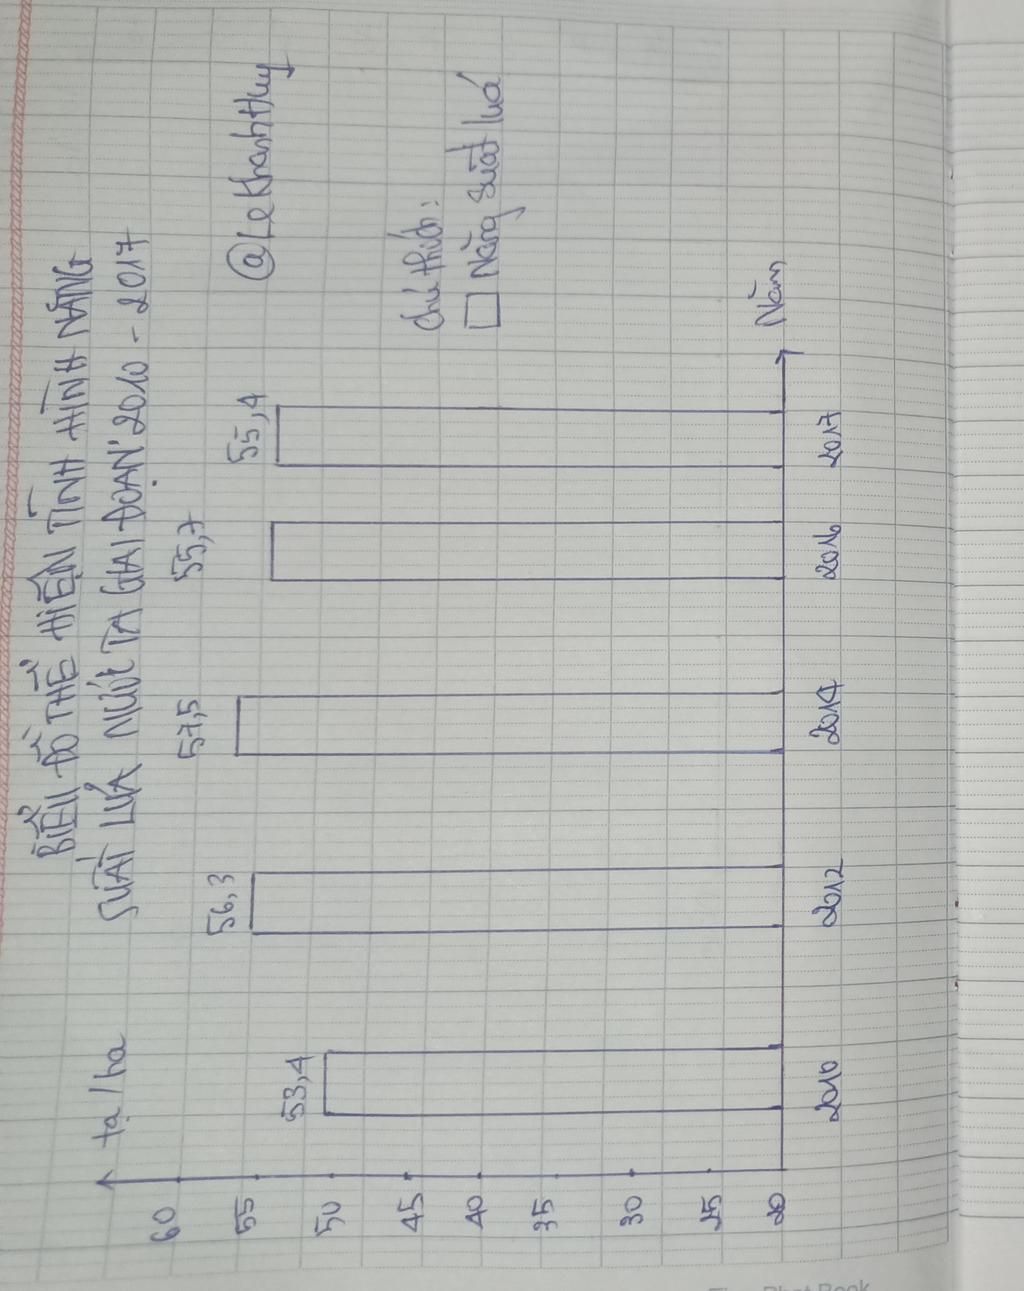 BIỂU ĐỒ THỂ HIỆN TÌNH HÌNH NĂNG
SUẤT LÚA NƯỚC TA GIAI ĐOẠN 2010 - 2017
tạ/ha
@Le Khanh Huy
chú thích:
Năng suất lúa
60
55
50
45
40
35
30
25
20
53,4
56,3
57,5
55,7
55,4
2010
2012
2014
2016
2017
Năm